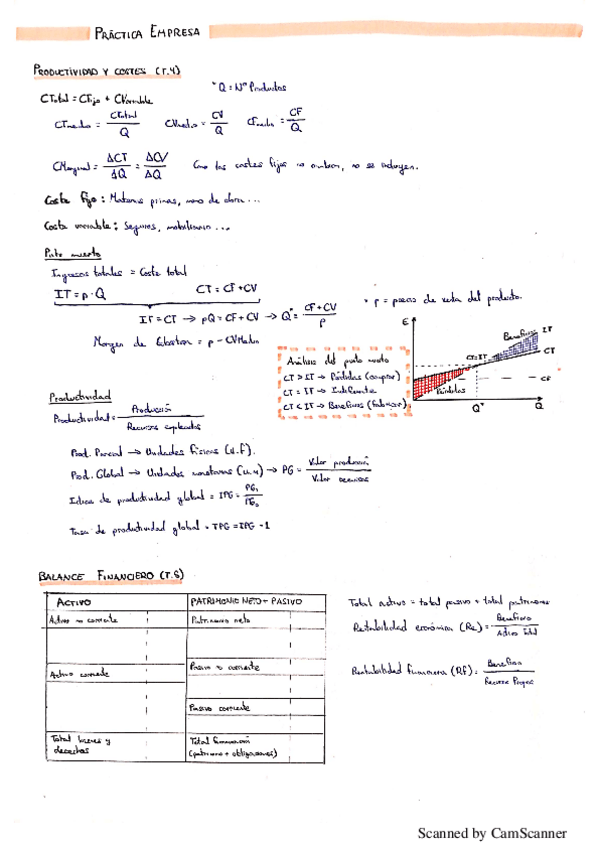 PRÁCTICA EMPRESA
PRODUCTIVIDAD Y COSTES (T.4)
* Q = Nº Productos
CTotal = CFijo + CVariable
CTmedio = CTotal / Q
CVMedio = CV / Q
CFmedio = CF / Q
CMarginal = ΔCT / ΔQ = ΔCV / ΔQ
Como los costes fijos no cambian, no se incluyen.
Coste fijo: Materias primas, mano de obra...
Coste variable: Seguros, mobiliario...
Punto muerto
Ingresos totales = Coste total
IT = p·Q
CT = CF + CV
IT = CT → pQ = CF + CV → Q* = CF + CV / p
* p = precio de venta del producto.
Margen de = p - CVMedio
Análisis del punto muerto
CT > IT → Pérdidas (comprar)
CT = IT → Indiferente
CT < IT → Beneficios (fabricar)
€
Beneficios
IT
CT
CT=IT
CF
Pérdidas
Q*
Q
Productividad
Productividad = Producción / Recursos empleados
Prod. Parcial → Unidades físicas (u.f).
Prod. Global → Unidades monetarias (u.m) → PG = Valor producción / Valor recursos
Índice de productividad global = IPG = PG₁ / PG₀
Tasa de productividad global = TPG = IPG - 1
BALANCE FINANCIERO (T.6)
ACTIVO
PATRIMONIO NETO + PASIVO
Activo no corriente
Patrimonio neto
Activo corriente
Pasivo no corriente
Pasivo corriente
Total bienes y derechos
Total financiación (patrimonio + obligaciones)
Total activo = total pasivo + total patrimonio
Rentabilidad económica (Re) = Beneficio / Activo total
Rentabilidad financiera (Rf) = Beneficio / Recursos Propios
Scanned by CamScanner